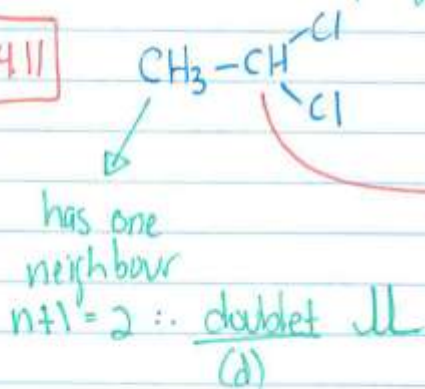 4.11
Cl
CH3-CH
Cl
has one
neighbour
n+1=2 ∴ doublet
(d)